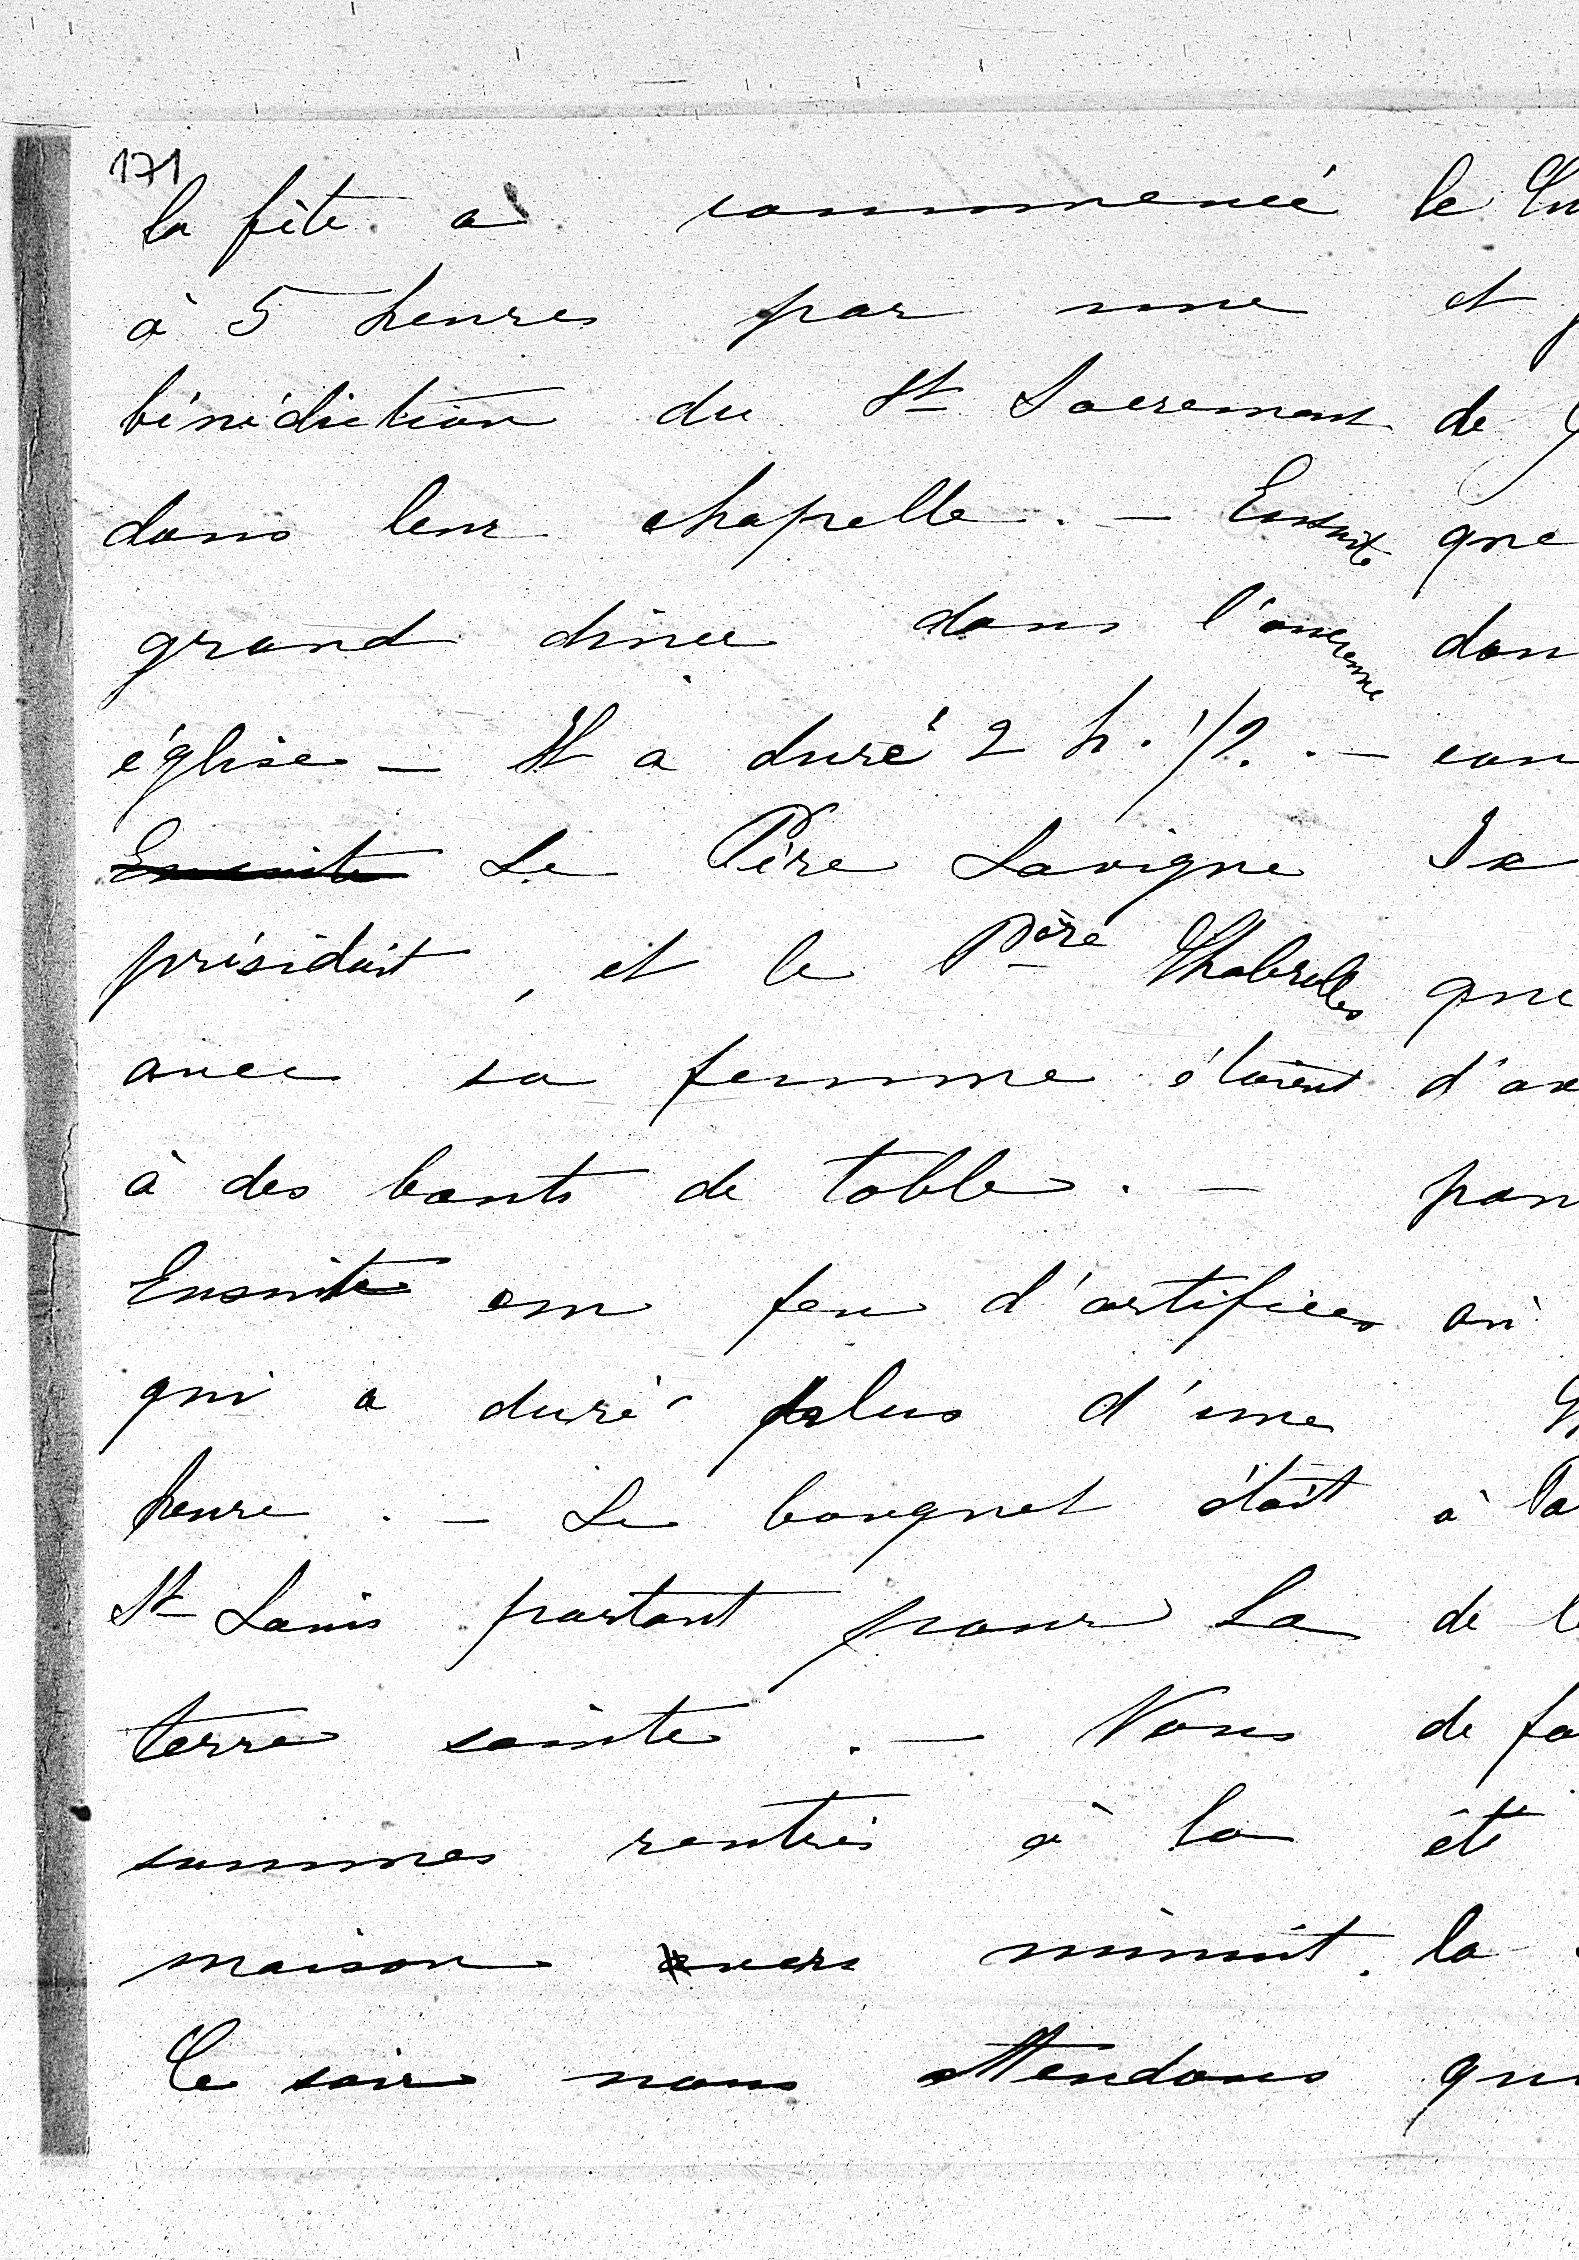 171
la fête a commencé
à 5 heures par une
bénédiction du St Sacrement
dans leur chapelle. — Ensuite
grand diner dans l'ancienne
église — Il a duré 2 h. 1/2. —
Ensuite Le Père Lavigne
présidait, et le Père Chabrelles
avec sa femme étaient
à des bouts de table. —
Ensuite un feu d'artifices
qui a duré plus d'une
heure. — Le bouquet était
St Louis partant pour La
terre sainte. — Nous
sommes rentrés à la
maison vers minuit.
Ce soir nous attendons
le
et
de
que
don
con
que
d'av
pour
où
à la
de
de fa
été
la
qui